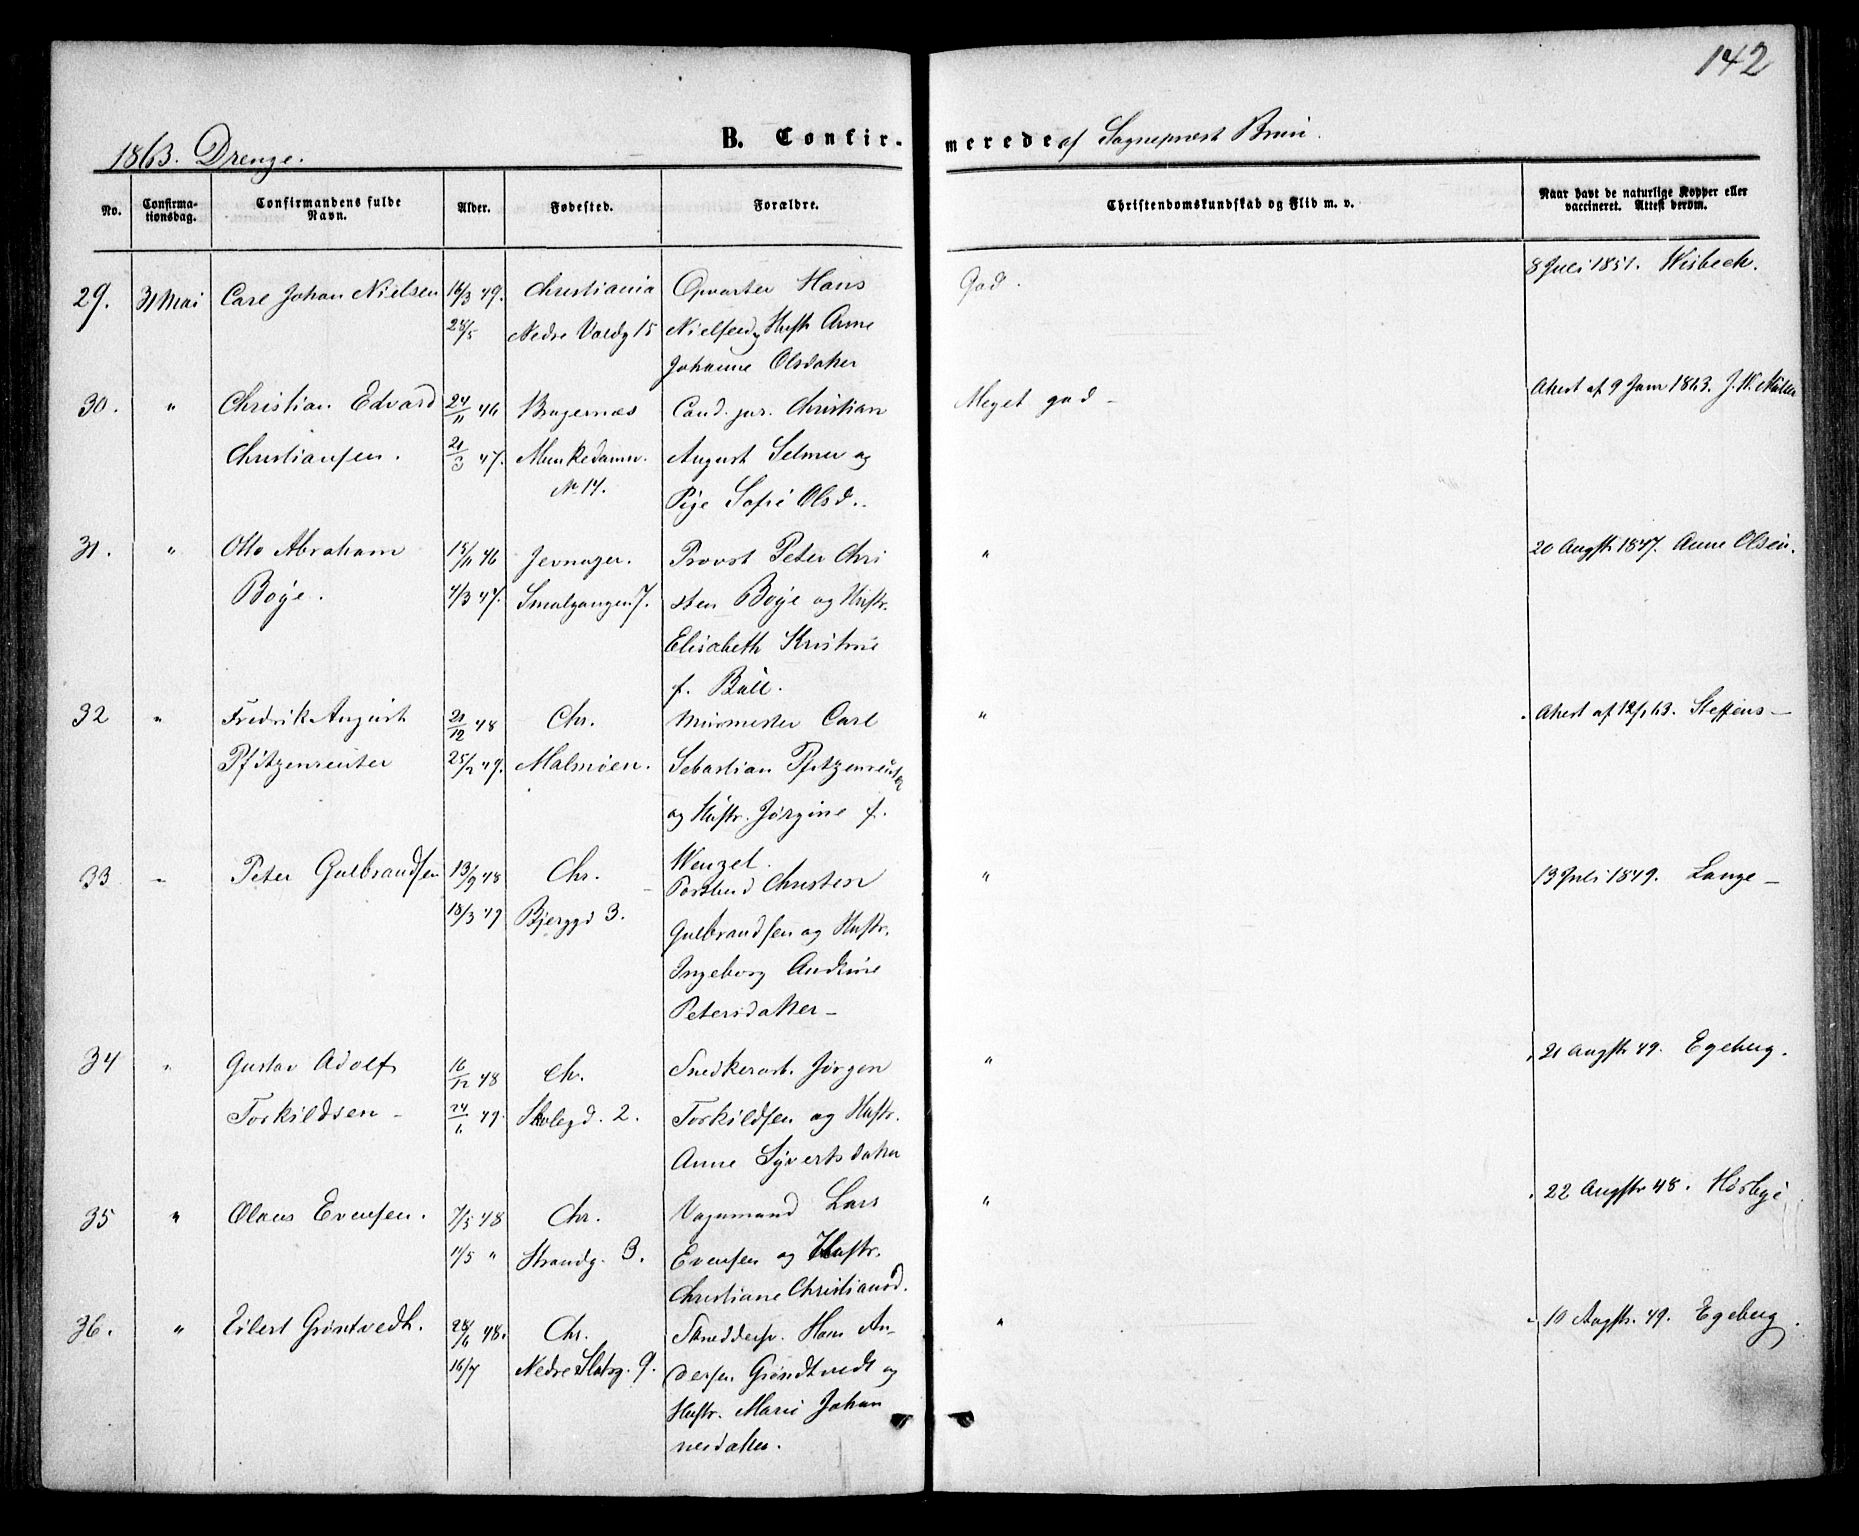 142
1863. Drenge.
B. Confir-
merede af Sognepræst Bruun.
No.
Confirma-
tionsdag.
Confirmandens fulde
Navn.
Alder.
Fødested.
Forældre.
Christendomskundskab og Flid m. v.
Naar havt de naturlige Kopper eller
vaccineret. Attest derom.
29. 31 Mai Carl Johan Nielsen 16/3 49. Christiania Opvarter Hans God. 8 Juli 1851. Wisbech.
28/5 Nedre Voldg 15 Nielsen og Hustr Anne
Johanne Olsdatter
30. " Christian Edvard 24/11 46 Bragernæs Cand. jur. Christian Meget god - Attest af 9 Janr 1863. J. W. Müller
Christiansen. 21/3 47. Munkedamsv. August Selmer og
No 14. Pige Sofie Olsd..
31. " Otto Abraham 18/11 46 Jevnager. Provst Peter Chri " 20 Augstr 1847. Anne Olsen.
Bøye. 4/3 47. Smalgangen 7. sten Bøye og Hustr.
Elisabeth Kristine
f. Bull.
32 " Fredrik August 21/12 48 Chr. Murmester Carl " Attest af 12/1 63. Steffens -
Pfitzenreuter 25/2 49. Malmøen. Sebastian Pfitzenreuter
og Hustr. Jørgine f.
Wenzel.
33 " Peter Gulbrandsen 13/9 48 Chr. Postbud Christen " 13 Juli 1849. Lange -
18/3 49 Bjerggd 3. Gulbrandsen og Hustr.
Ingeborg Andrine
Petersdatter -
34 " Gustav Adolf 16/12 48 Chr. Snedkerarb. Jørgen " 21 Augstr 49. Egeberg.
Torkildsen - 24/6 49. Skolegd. 2. Torkildsen og Hustr.
Anne Syvertsdatter
35 " Olaus Evensen. 7/3 48 Chr. Vognmand Lars " 22 Augstr 48. Hørbye
11/5 " Strandg. 3. Evensen og Hustr.
Christiane Christiansd.
36. " Eilert Gröntvedt. 28/6 48. Chr. Skreddersv. Hans An- " 10 Augstr. 49. Egeberg.
16/7 Nedre Slotsg. 9. dersen Gröndtvedt og
Hustr. Marie Johan
nesdatter.